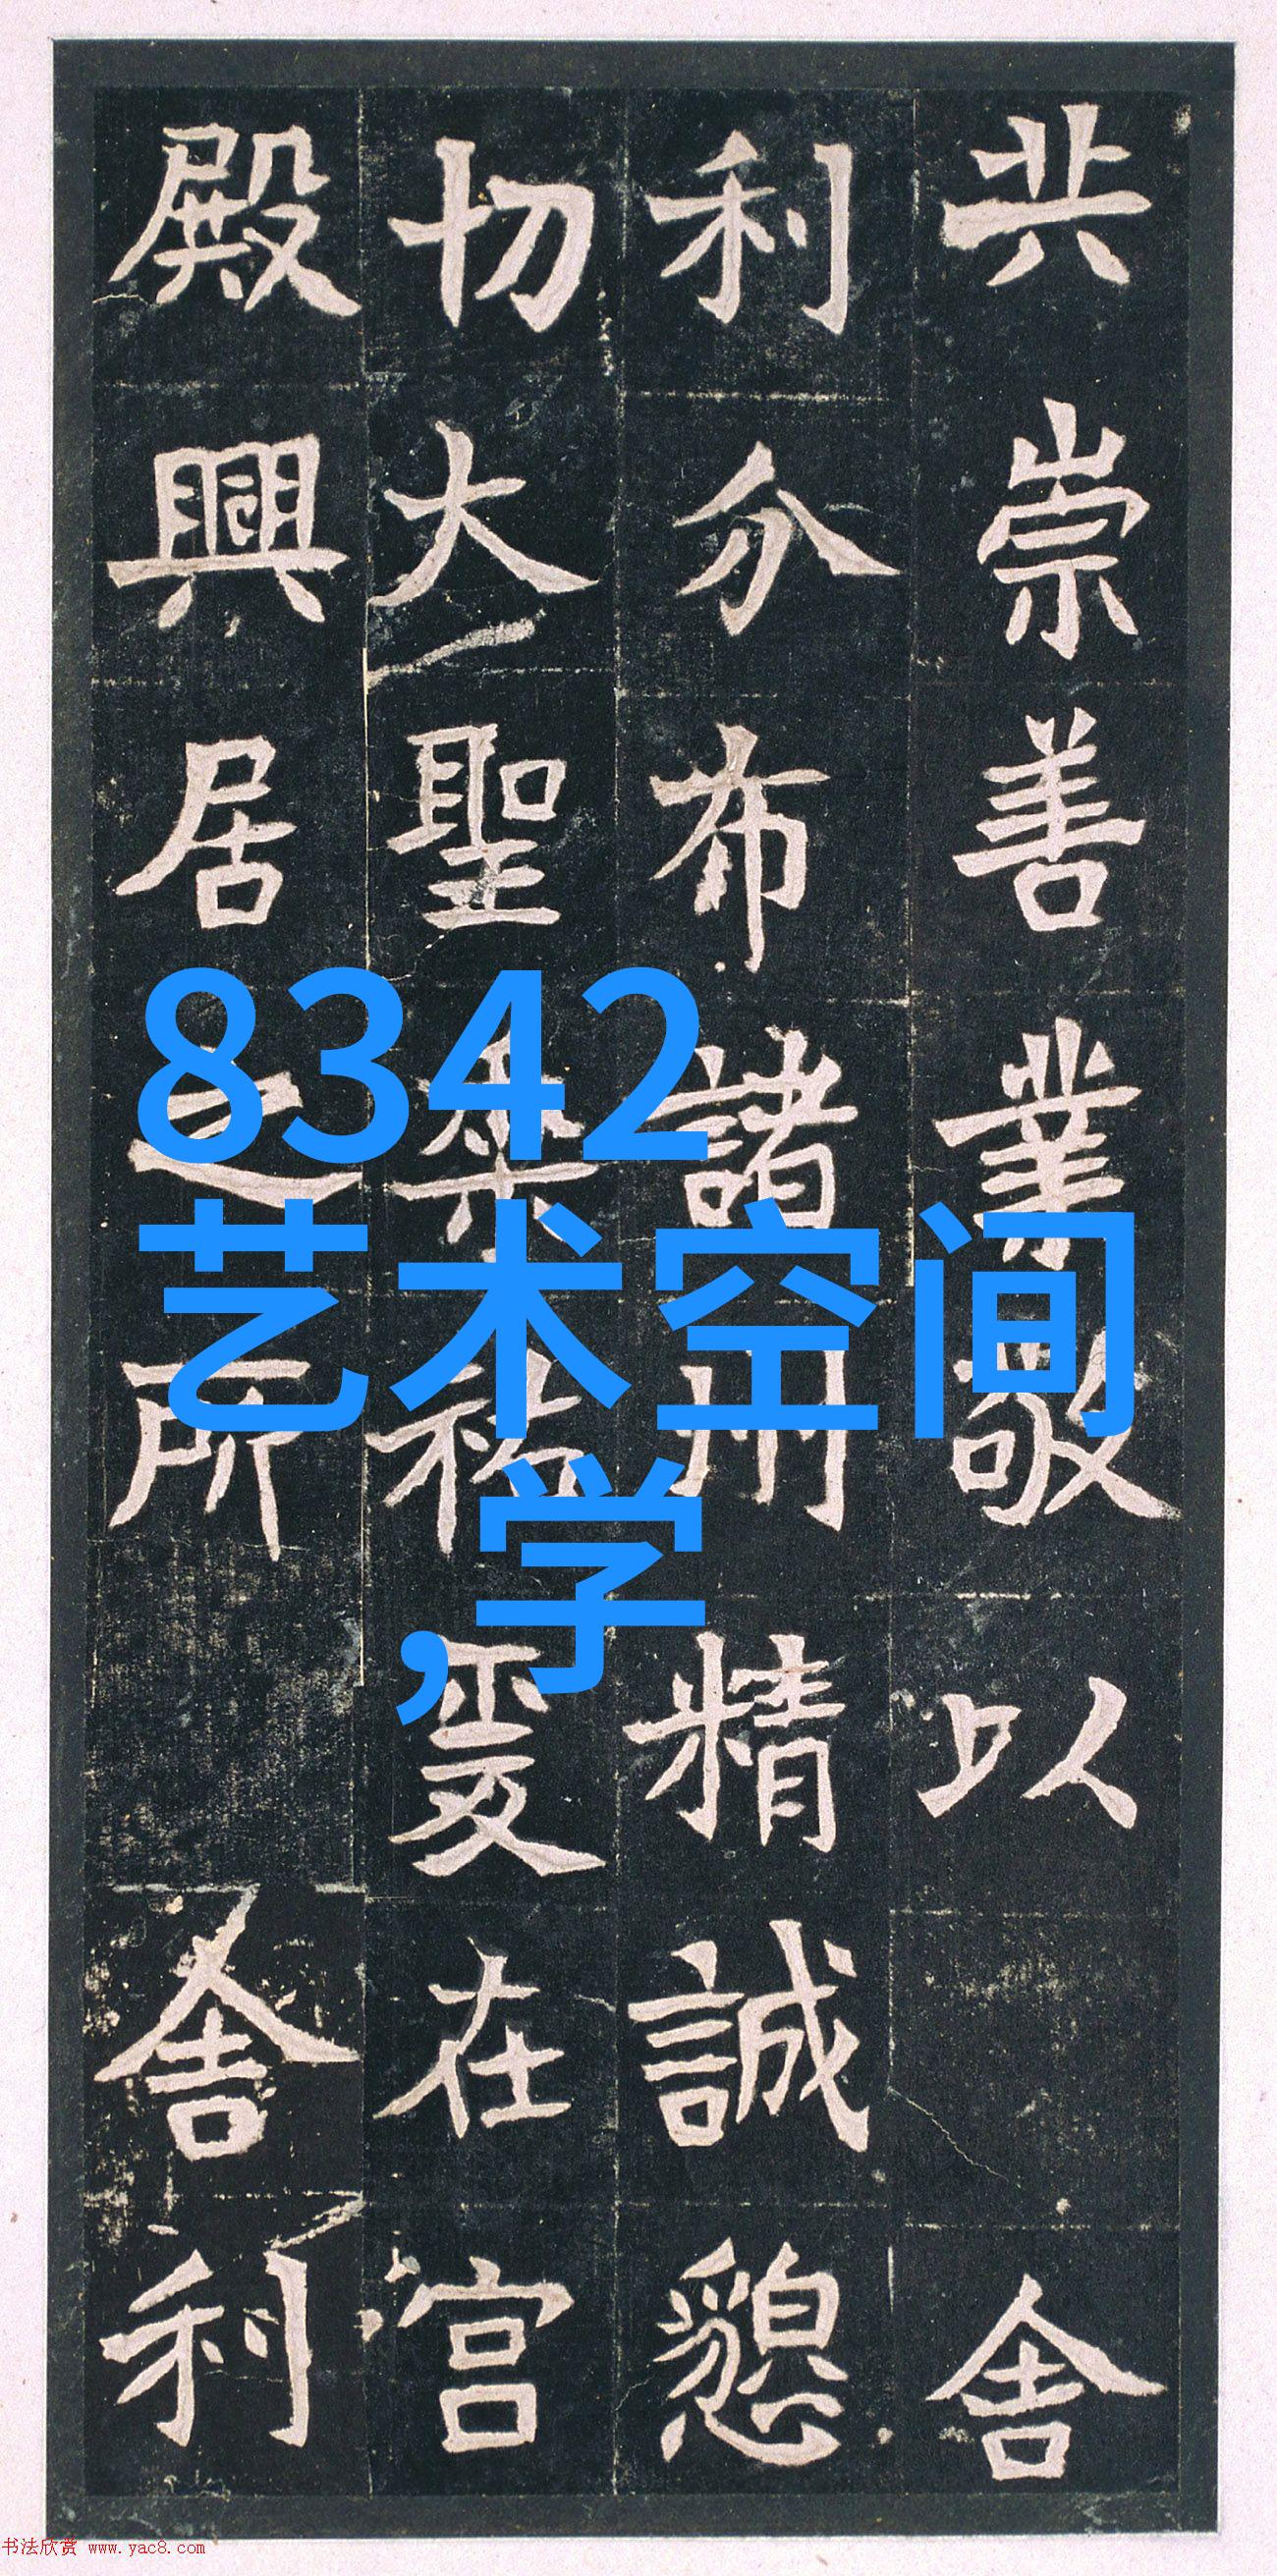 共崇善業敬以舍
利分布諸州精誠懇
切大聖垂祐爰在宫
殿興居之所舍利
8342
艺术空间
,学
书法欣赏 www.yac8.com